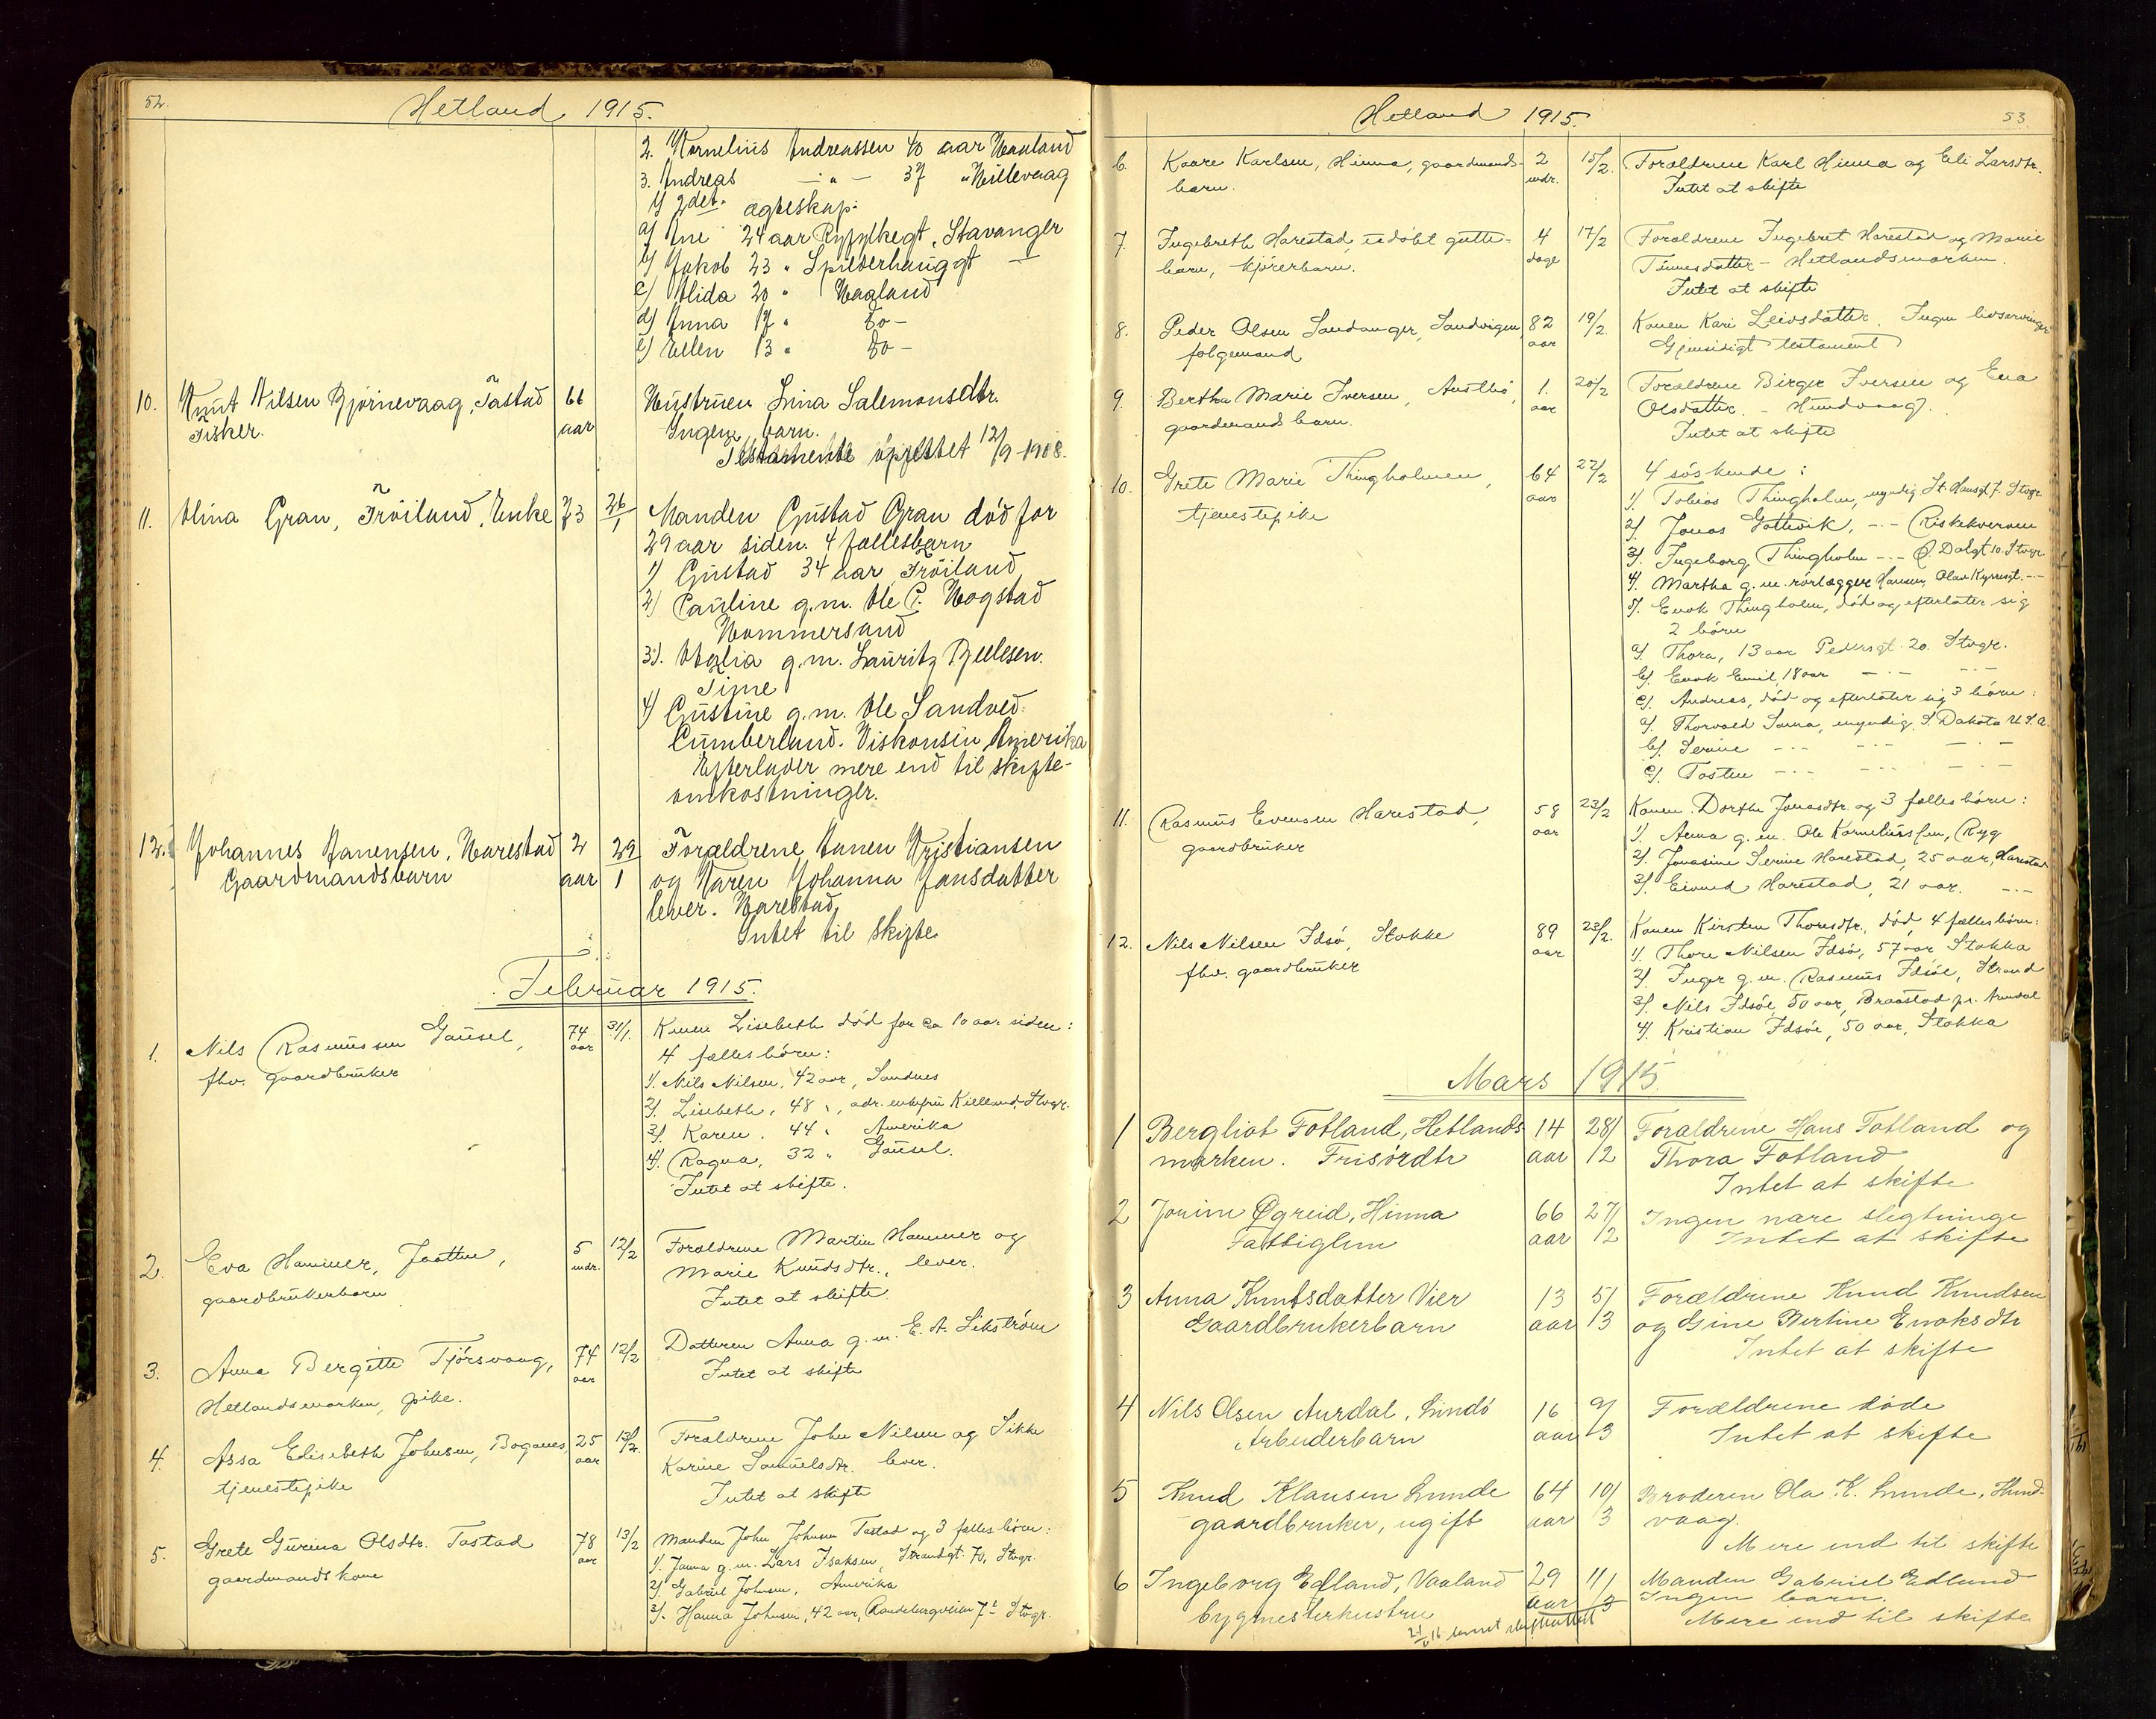 52.
Hetland 1915.
2. Kornelius Andreassen 40 aar Vaaland
3. Andreas —"— 37 " Hillevaag
1) 2det ægteskap:
a) Ane 24 aar Ryfylkegt, Stavanger
b) Jakob 23 " Spilderhauggt —"—
c) Alida 20 " Vaaland
d) Anna 17 " do —
e) Ellen 13 " do —
10. Knut Nilsen Bjørnevaag, Tastad 66 Hustruen Lina Salemonsdtr.
Fisker. aar Ingen barn.
Testamente oprettet 12/9-1908.
11. Olina Gran, Frøiland, Enke 73 26/1 Manden Gustad Gran død for
29 aar siden. 4 fællesbarn
1) Gustad 34 aar Frøiland
2) Pauline g.m. Ole P. Hogstad
Hommersand
3). g.m. Lauritz
Time
4) Gustine g.m. Ole Sandved
Cumberland. Viskonsin, Amerika
Efterlader mere end til skifte-
omkostninger.
12. Johannes Janensen, Harestad 2 29 Forældrene Janen Kristiansen
Gaardmandsbarn aar 1 og Karen Johanna Jansdatter
lever. Harestad.
Intet til skifte
Februar 1915.
1. Nils Rasmussen Gausel, 74 aar 31/1. Konen Lisebeth død for ca 10 aar siden:
fhv. gaardbruker 4 fællesbørn:
1). Nils Nilsen, 42 aar, Sandnes
2). Lisebeth, 48 ", adr. enkefru Kielland, Stvgr.
3). Karen. 44 " Amerika
4). Ragna, 32 " Gausel.
Intet at skifte.
2. Eva Hammer, Jaatten, 5 mdr. 12/2 Forældrene Martin Hammer og
gaardbrukerbarn Marie Knudsdtr., lever.
Intet at skifte
3. Anna Bergitte Tjørsvaag, 74 aar 12/2 Datteren Anna g.m. E. A. Sikström
Hetlandsmarken, pike. Intet at skifte
4. Assa Elisebeth Johnsen, Boganes, 25 aar 13/2. Forældrene John Nilsen og Sikke
tjenestepike Karine Samuelsdtr. lever.
Intet at skifte
5. Grete Gurina Olsdtr. Tastad 78 aar 13/2 Manden John Johnsen Tastad og 3 fælles børn:
gaardmandskone 1). Janna g.m. Lars Isaksen, Strandgt. 70, Stvgr.
2). Gabriel Johnsen, Amerika
3). Hanna Johnsen, 42 aar, Randebergveien 7b Stvgr.
Hetland 1915.
53.
6. Kaare Karlsen, Hinna, gaardmands- 2 mdr. 15/2. Forældrene Karl Hinna og Eli Larsdtr.
barn. Intet at skifte
7. Ingebreth Harestad, udøbt gutte- 4 dage 17/2 Forældrene Ingebret Harestad og Marie
barn, kjørerbarn. Tinnesdatter - Hetlandsmarken.
Intet at skifte
8. Peder Olsen Sandanger, Sandvigen, 82 aar 19/2. Konen Kari Leivsdatter. Ingen livsarvinger
følgemand Gjensidigt testament
9. Bertha Marie Iversen, Austbø, 1. aar 20/2 Forældrene Birger Iversen og Ena
gaardmandsbarn. Olsdatter. - Hundvaag.
Intet at skifte
10. Grete Marie Thingholmen, 64 aar 22/2 4 søskende:
tjenestepike 1). Tobias Thingholm, myndig St. Hansgt 7. Stvgr.
2). Jonas Gottevik, -"- Riskekvernen
3). Ingeborg Thingholm -"- Ø. Dalgt 10. Stvgr.
4). Martha g.m. rørlægger Hansen, Olav Kyrresgt. -"-
5). Enok Thingholm, død og efterlater sig
2 børn
a). Thora, 13 aar Pedersgt. 20. Stvgr.
b). Enok Emil, 18 aar -"- -"-
c). Andreas, død og efterlater sig 3 børn:
a). Thorvald Sama, myndig, S. Dakota U.S.A.
b). Serine -"- -"- -"-
c). Tosten -"- -"- -"-
11. Rasmus Evensen Harestad, 58 aar 23/2 Konen Dorthe Jonasdtr. og 3 fælles børn:
gaardbruker 1). Anna g.m. Ole Korneliussen, Ryg
2). Jonasine Serine Harestad, 25 aar, Harestad
3). Eivind Harestad, 21 aar. -"-
12. Nils Nilsen Idsø, Stokke 89 aar 23/2. Konen Kirsten Thoresdtr., død, 4 fælles børn:
fhv. gaardbruker 1). Thore Nilsen Idsø, 57 aar Stokka
2). Inger g.m. Rasmus Idsøe, Strand
3). Nils Idsøe, 50 aar, Braastad pr. Arendal
4). Kristian Idsøe, 50 aar, Stokka
Mars 1915.
1 Bergliot Fotland, Hetlands 14 28/ Forældrene Hans Fotland og
marken. Frisørdtr aar 12 Thora Fotland
Intet at skifte
2 Jorine Øgreid, Hinna 66 27/ Ingen nære slegtninge
Fattiglem aar 12 Intet at skifte
3 Anna Knutsdatter Vier 13 5/ Forældrene Knud Knudsen
Gaardbrukerbarn aar 13 og Gine Bertine Enoksdtr
Intet at skifte
4 Nils Olsen Aurdal, Lindø 16 9/ Forældrene døde
Arbeiderbarn aar 3 Intet at skifte
5 Knud Klausen Lunde 64 10/ Broderen Ola K. Lunde, Hund-
gaardbruker, ugift aar 3 vaag.
Mere end til skifte
6 Ingeborg Edland, Vaaland 29 11/ Manden Gabriel Edland
bygmesterhustru aar 3 Ingen barn.
Mere end til skifte